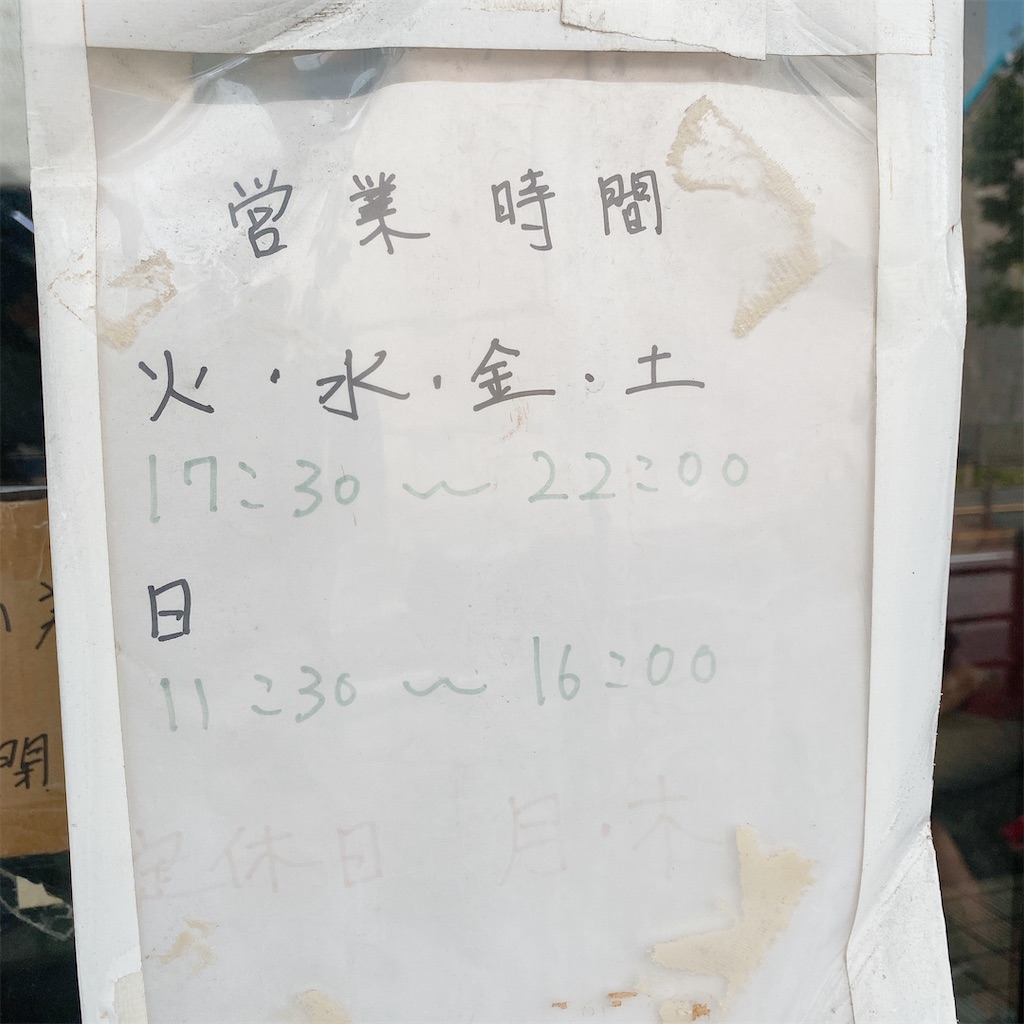 営業時間
火・水・金・土
17:30〜22:00
日
11:30〜16:00
定休日 月・木